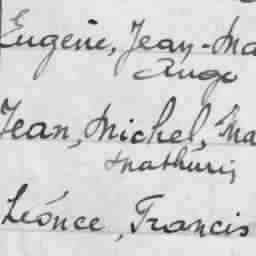 Eugène, Jean-Ma
Ange
Jean, Michel, Ma
Mathurin
Léonce, Francis